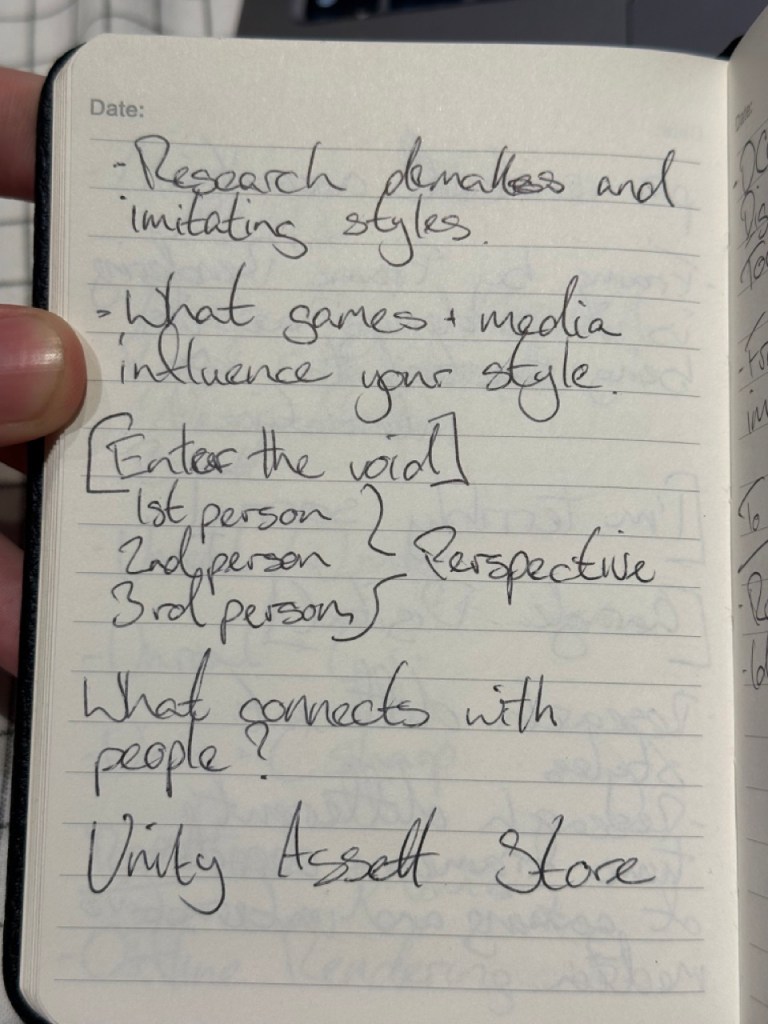 Date:
- Research and
imitating styles.
- What games + media
influence your style.
[Enter the void]
1st person
2nd person
3rd person
Perspective
What connects with
people?
Unity Assett Store